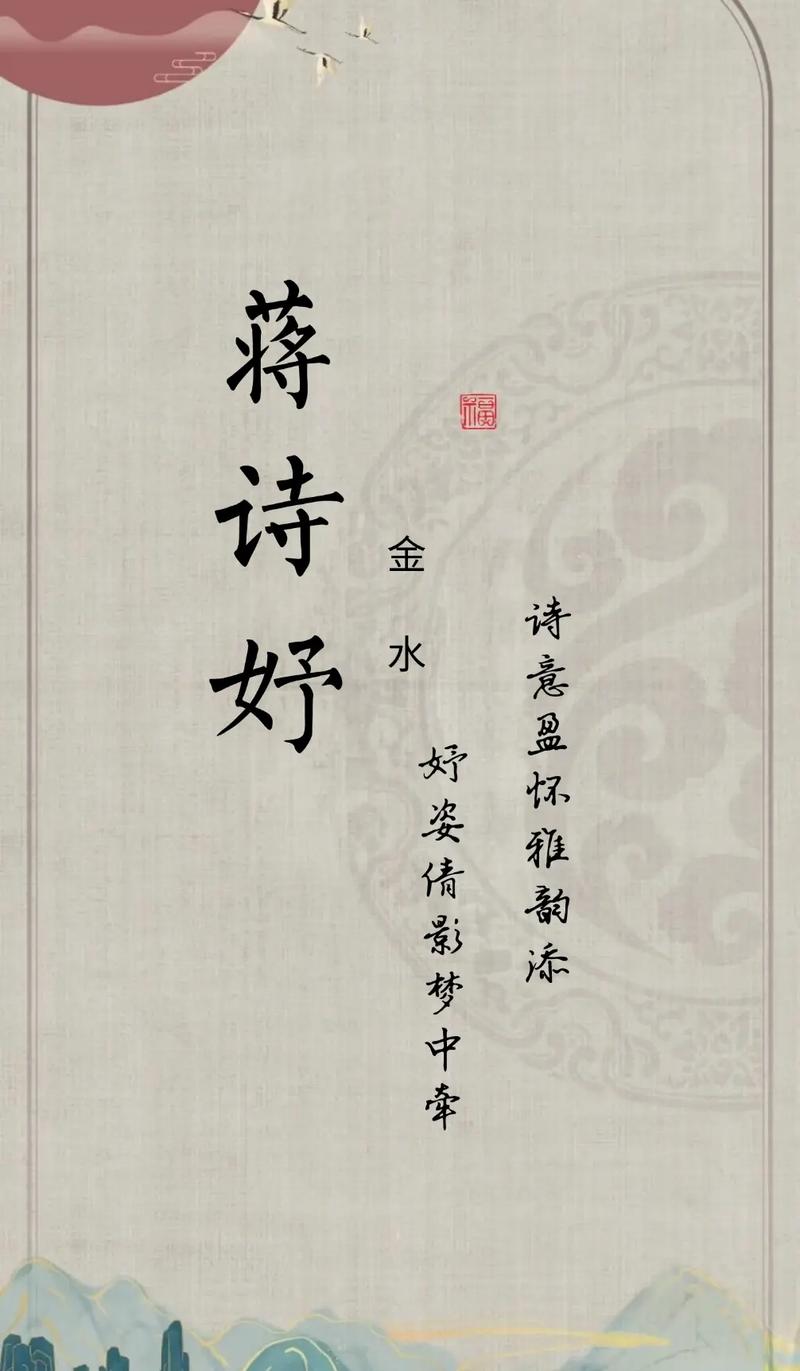 蒋诗妤
金水
福
诗意盈怀雅韵添
妤姿倩影梦中牵